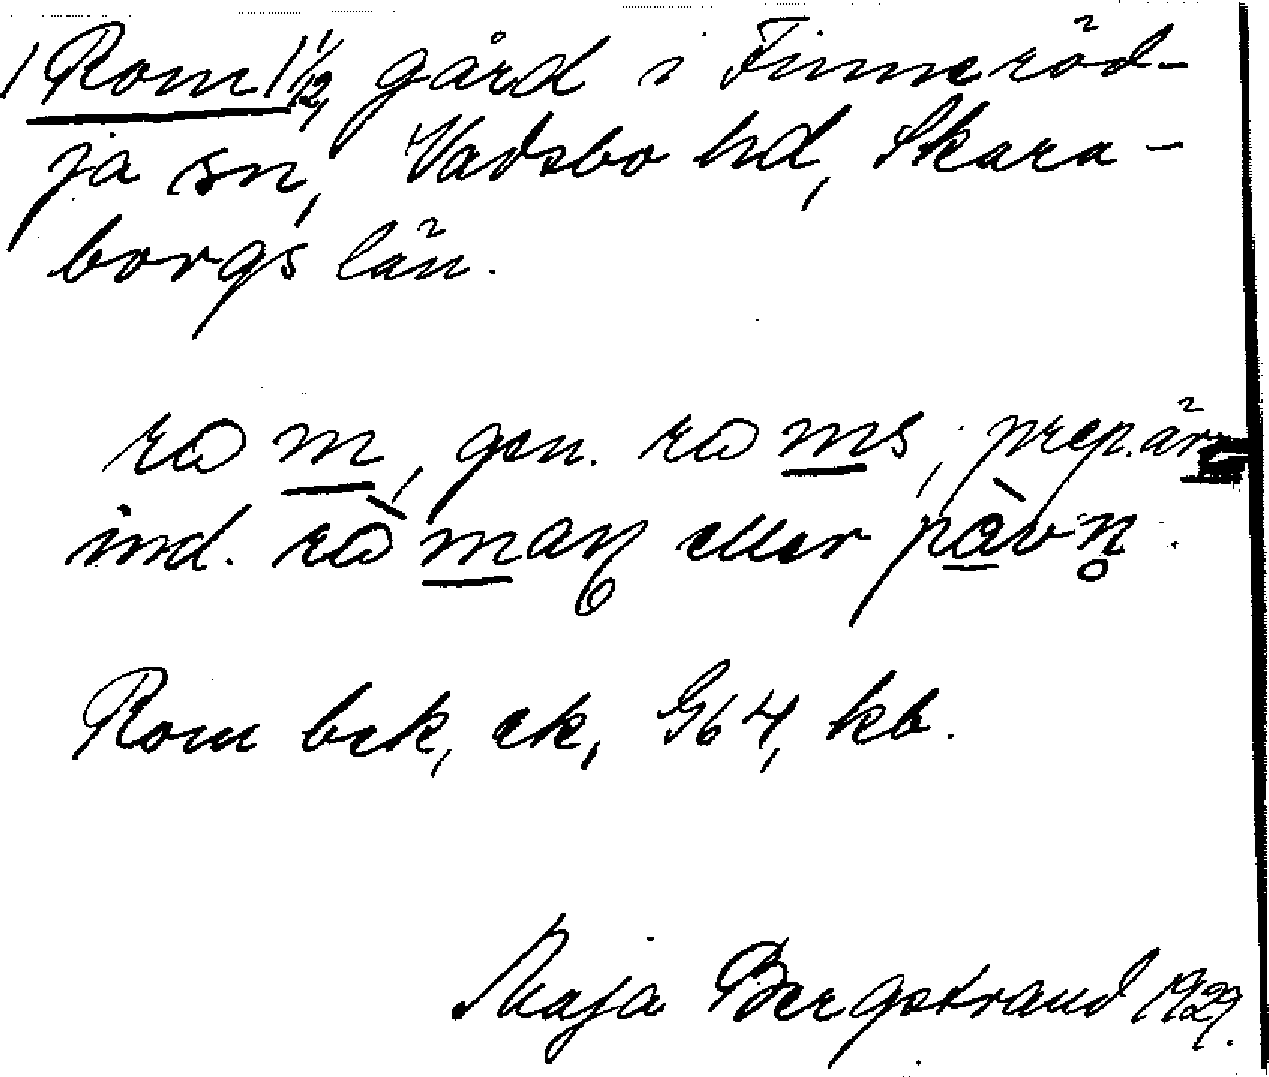 /Rom/ 1 1/12, gård i Finneröd-
ja sn, Vadsbo hd, Skara-
borgs län.
ram, gen. rams, prep. är
ind. ràmaŋ eller pàvn̥.
Rom bek, ek, Gb 4, kb.
Maja Bergstrand 1929.